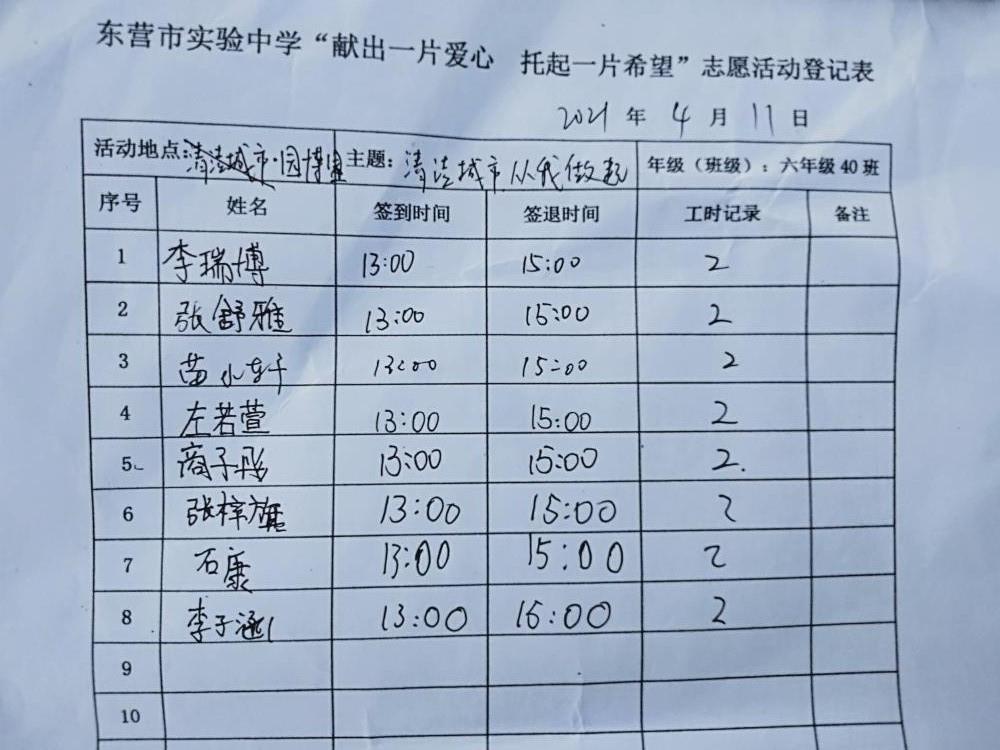 东营市实验中学“献出一片爱心 托起一片希望”志愿活动登记表
2021 年 4 月 11 日
活动地点:清洁城市·园博园 主题:清洁城市从我做起 年级（班级）：六年级 40 班
序号 姓名 签到时间 签退时间 工时记录 备注
1 李瑞博 13:00 15:00 2
2 张舒雅 13:00 15:00 2
3 苗小轩 13:00 15:00 2
4 左若萱 13:00 15:00 2
5 商子彤 13:00 15:00 2.
6 张梓旗 13:00 15:00 2
7 石康 13:00 15:00 2
8 李子涵 13:00 15:00 2
9
10